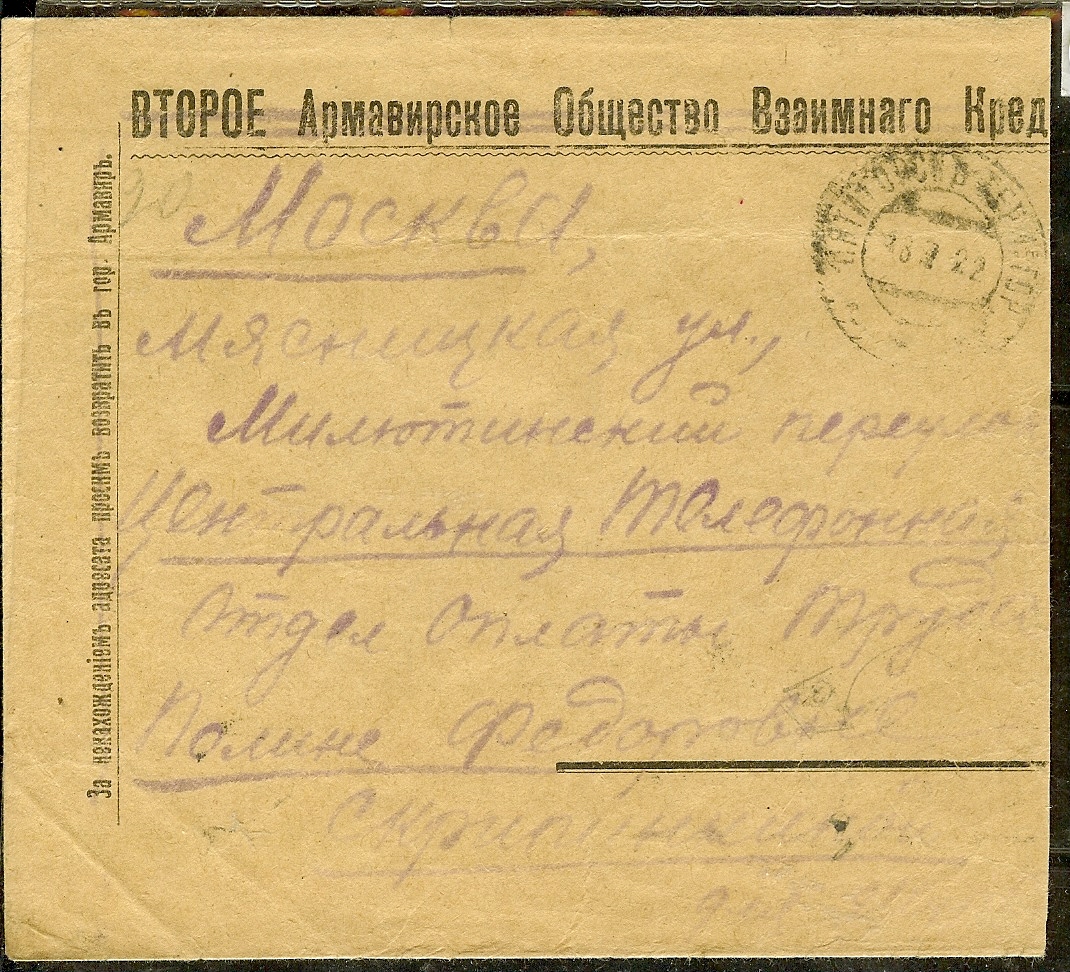 ВТОРОЕ Армавирское Общество Взаимнаго Кред
За ненахожденіемъ адресата просимъ возвратить въ гор. Армавиръ.
Москва,
Мясницкая ул.,
Милютинский переу
Центральная Телефонн
Отдел оплаты Труда
Полине Федоровне